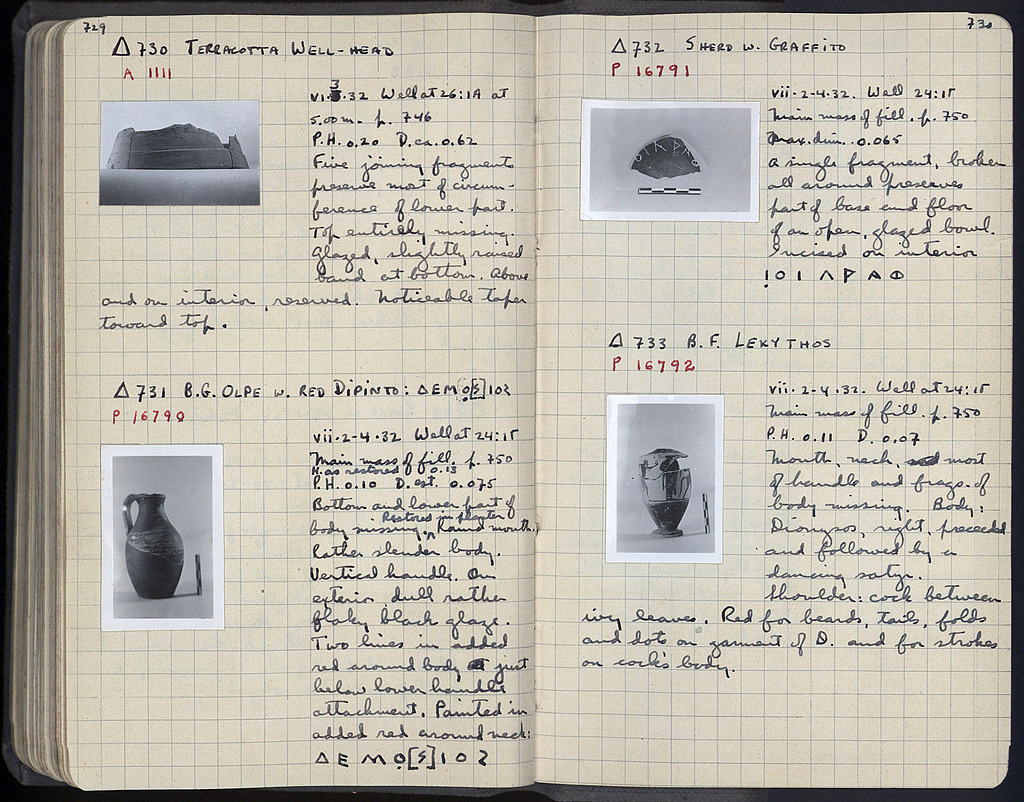 729
Δ 730 TERRACOTTA WELL-HEAD
A 1111
vi.3.32 Well at 26:1A at
5.00 m. p. 746
P.H. 0.20 D. ca. 0.62
Five joining fragments
preserve most of circum-
ference of lower part.
Top entirely missing.
Glazed, slightly raised
band at bottom. Above
and on interior, reserved. Noticeable taper
toward top.
Δ 731 B.G. OLPE W. RED DIPINTO: ΔEMO[S]IOS
P 16790
vii.2-4.32 Well at 24:1Γ
Main mass of fill. p. 750
H. as restored 0.13
P.H. 0.10 D. est. 0.075
Bottom and lower part of
Restored in plaster
body missing. Round mouth.
Rather slender body.
Vertical handle. On
exterior dull rather
flaky black glaze.
Two lines in added
red around body just
below lower handle
attachment. Painted in
added red around neck:
Δ E M O [S] I O S
730
Δ 732 SHERD W. GRAFFITO
P 16791
vii.2-4.32. Well 24:1Γ
Main mass of fill. p. 750
Max. dim. 0.065
A single fragment, broken
all around preserves
part of base and floor
of an open, glazed bowl.
Incised on interior
Δ 733 B.F. LEKYTHOS
P 16792
vii.2-4.32. Well at 24:1Γ
Main mass of fill. p. 750
P.H. 0.11 D. 0.07
Mouth, neck, most
of handle and frags. of
body missing. Body:
Dionysos, right, preceded
and followed by a
dancing satyr.
Shoulder: cock between
ivy leaves. Red for beards, tails, folds
and dots on garment of D. and for strokes
on cock's body.